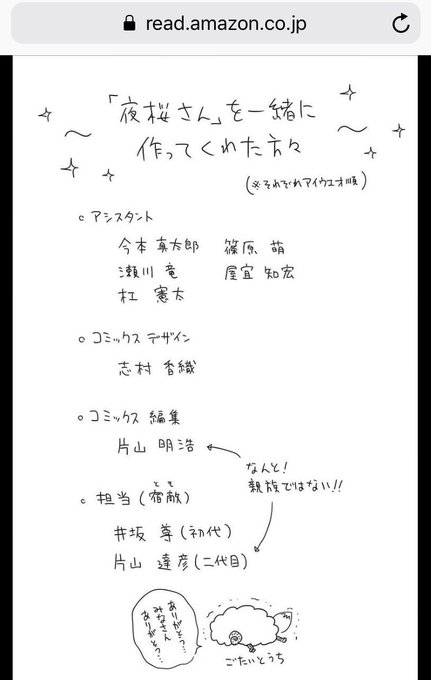 read.amazon.co.jp
「夜桜さん」を一緒に
作ってくれた方々
(※それぞれアイウエオ順)
○ アシスタント
今本 真太郎 篠原 萌
瀬川 竜 屋宜 知宏
杠 憲太
○ コミックス デザイン
志村 香織
○ コミックス 編集
片山 明浩
なんと!
親族ではない!!
○ 担当(宿敵)
とも
井坂 尊(初代)
片山 達彦(二代目)
ありがとう…
みなさん
ありがとう…
ごたいとうち